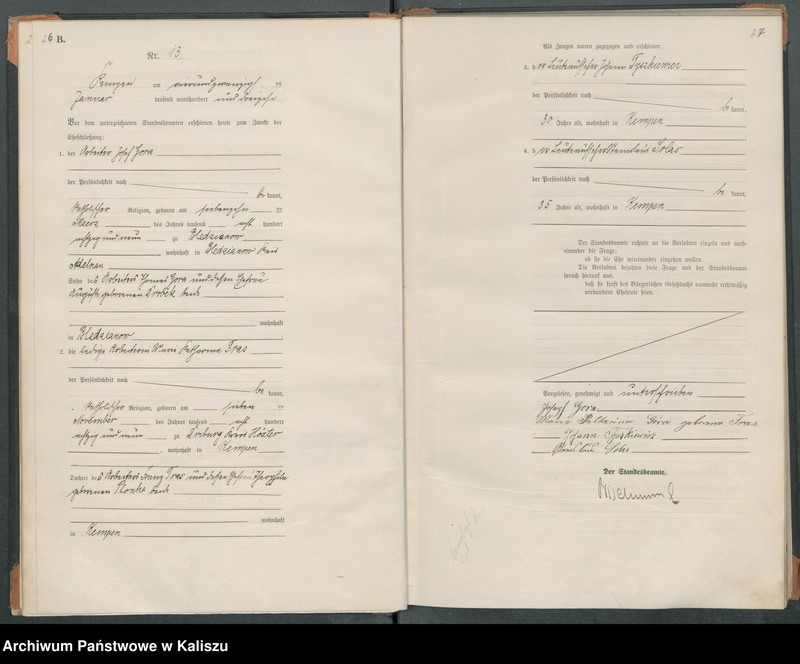 26 B.
Nr. 13
Kempen am vierundzwanzigsten
Januar tausend neunhundert und dreizehn
Vor dem unterzeichneten Standesbeamten erschienen heute zum Zwecke der
Eheschließung:
1. der Arbeiter Josef Gora
der Persönlichkeit nach
be kannt,
katholischer Religion, geboren am siebenzehn ten
März des Jahres tausend acht hundert
achtzig und neun zu Kledzianow
, wohnhaft in Kledzianow Kreis
Adelnau
Sohn des Arbeiters Thomas Gora und dessen Ehefrau
Auguste geborenen beide
wohnhaft
in Kledzianow
2. die ledige Arbeiterin Maria Katharina Fras
der Persönlichkeit nach
be kannt,
katholischer Religion, geboren am sieben ten
November des Jahres tausend acht hundert
achtzig und neun zu Driburg Kreis Höxter
, wohnhaft in Kempen
Tochter des Arbeiters Franz Fras und dessen Ehefrau Theophila
geborenen Slonka beide
wohnhaft
in Kempen
27
Als Zeugen waren zugezogen und erschienen:
3. der Johann Tyszkiewicz
der Persönlichkeit nach
be kannt,
30 Jahre alt, wohnhaft in Kempen
4. der Stanislaus Solas
der Persönlichkeit nach
be kannt,
35 Jahre alt, wohnhaft in Kempen
Der Standesbeamte richtete an die Verlobten einzeln und nach-
einander die Frage:
ob sie die Ehe miteinander eingehen wollen.
Die Verlobten bejahten diese Frage und der Standesbeamte
sprach hierauf aus,
daß sie kraft des Bürgerlichen Gesetzbuchs nunmehr rechtmäßig
verbundene Eheleute seien.
Vorgelesen, genehmigt und unterschrieben
Josef Gora
Maria Katharina Gora geborene Fras
Johann Tyszkiewicz
Solas
Der Standesbeamte.
Archiwum Państwowe w Kaliszu